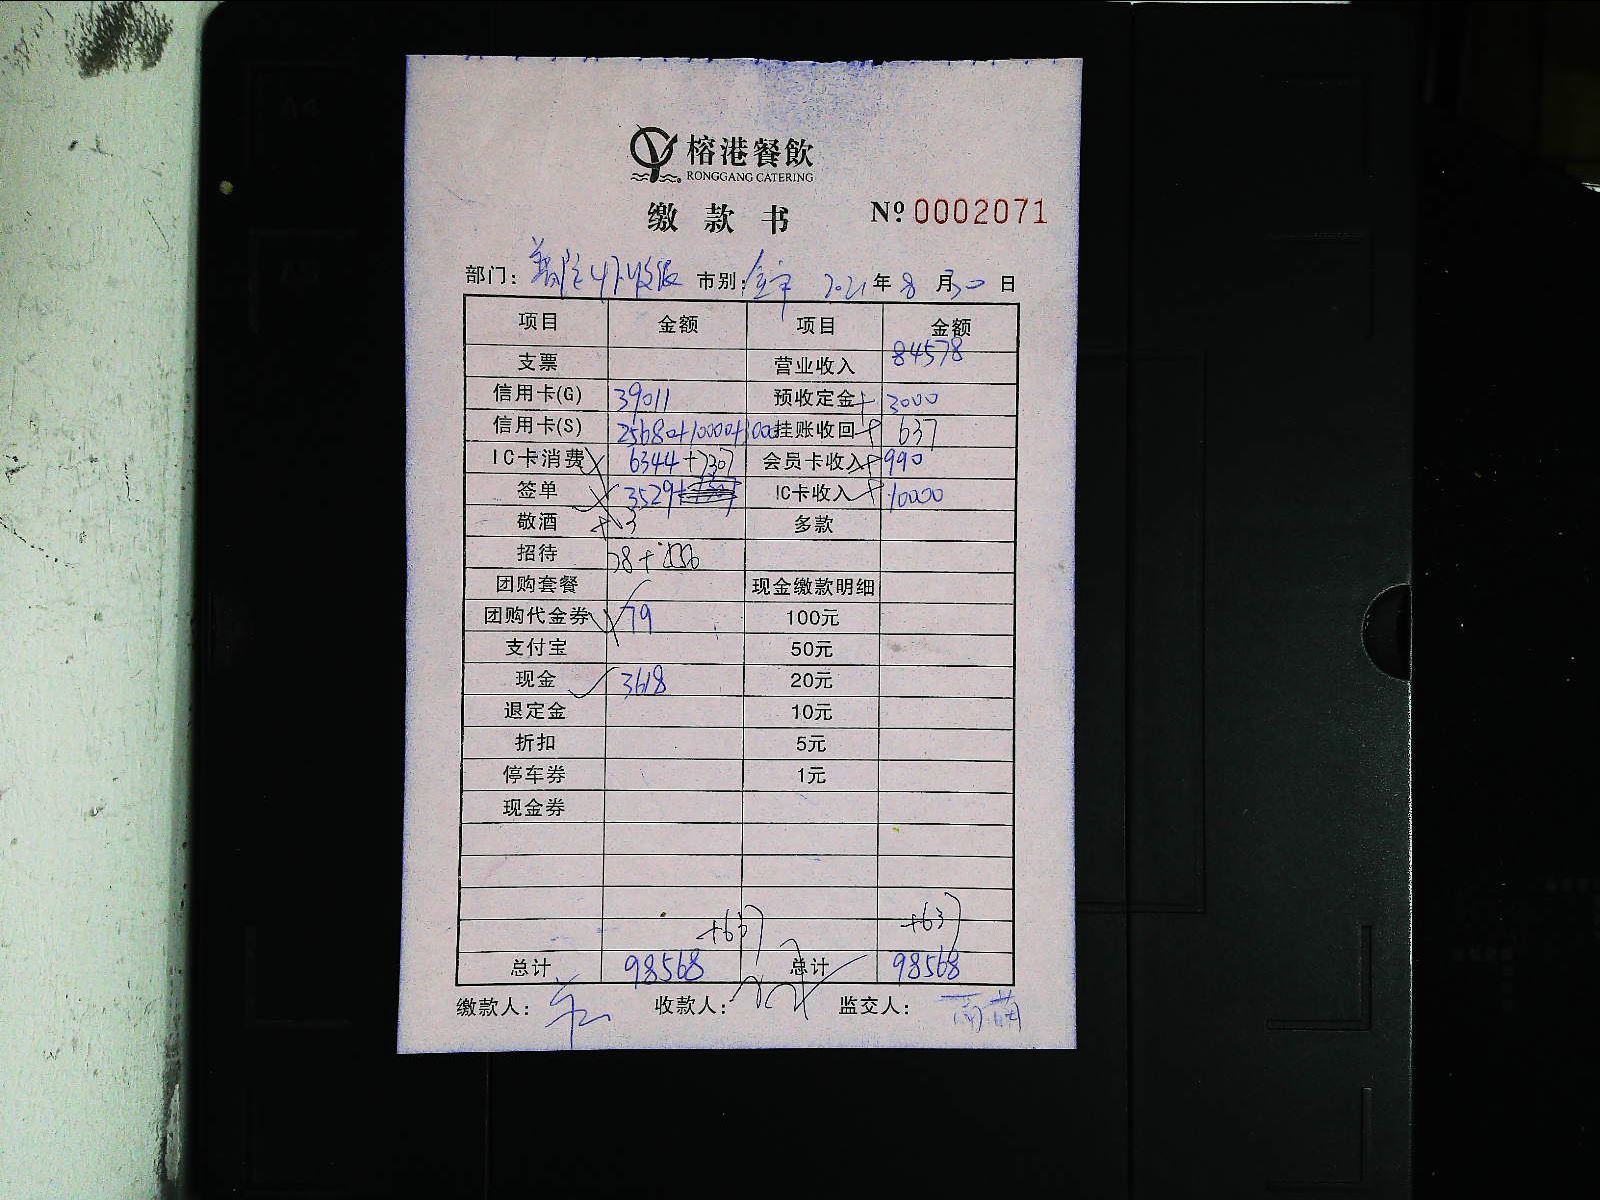 榕港餐飲
RONGGANG CATERING
缴款书 Nº 0002071
部门: 市别: 全市 2021年 8 月 30 日
项目 金额 项目 金额
支票 营业收入 84578
信用卡(G) 39011 预收定金+ 3000
信用卡(S) 25680+10000+1000 挂账收回+ 637
IC卡消费 6344+7307 会员卡收入+ 990
签单 3529+ IC卡收入+ 10000
敬酒 +3 多款
招待
团购套餐 现金缴款明细
团购代金券 79 100元
支付宝 50元
现金 3618 20元
退定金 10元
折扣 5元
停车券 1元
现金券
+637 +637
总计 98568 总计 98568
缴款人: 收款人: 监交人: